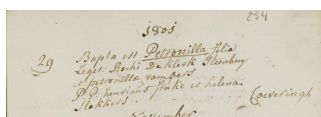 234
1801
29 Bapta est Petronilla filia
Legit. Rochi De Klerk Steenberg
et petronillæ rombass
P.P. henricus franke et helena
Stokkers Coeveringh